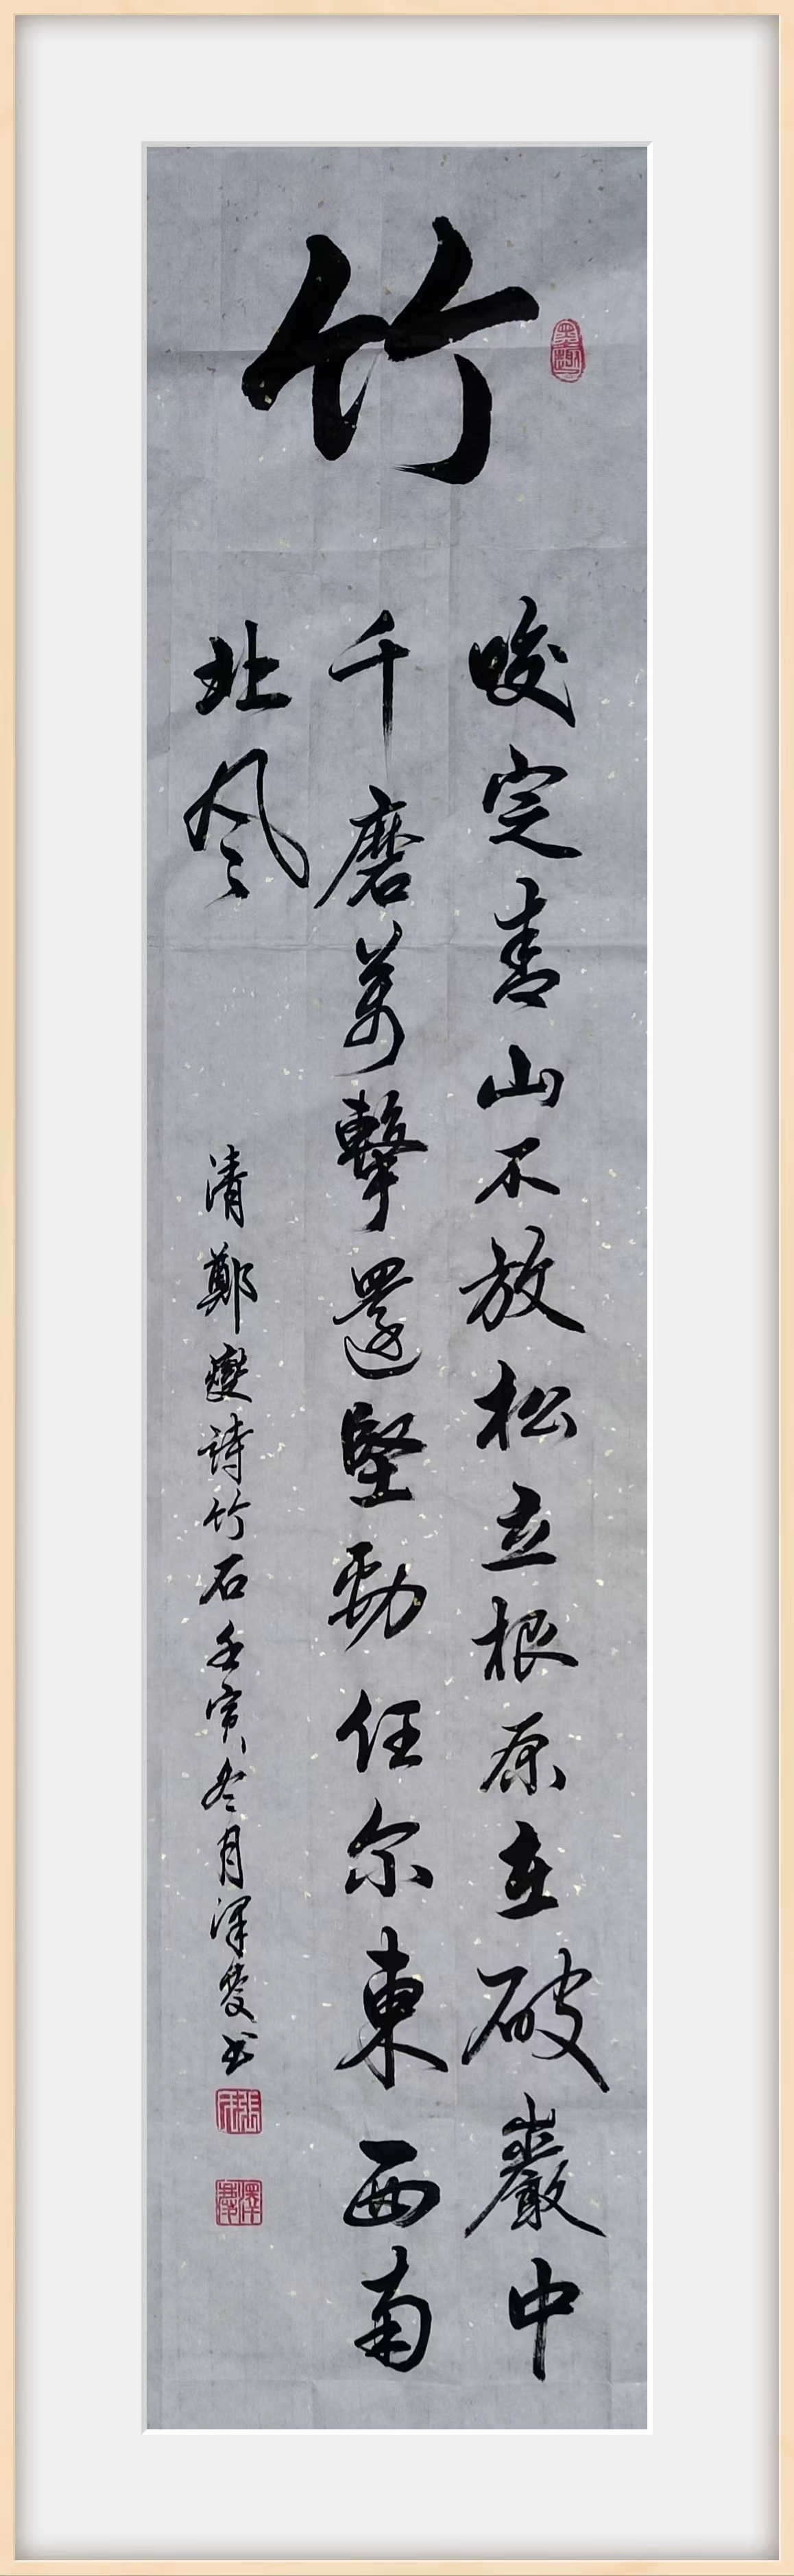 竹
墨趣
咬定青山不放松立根原在破巖中
千磨萬擊還堅勁任尔東西南
北風
清鄭燮詩竹石壬寅冬月澤书